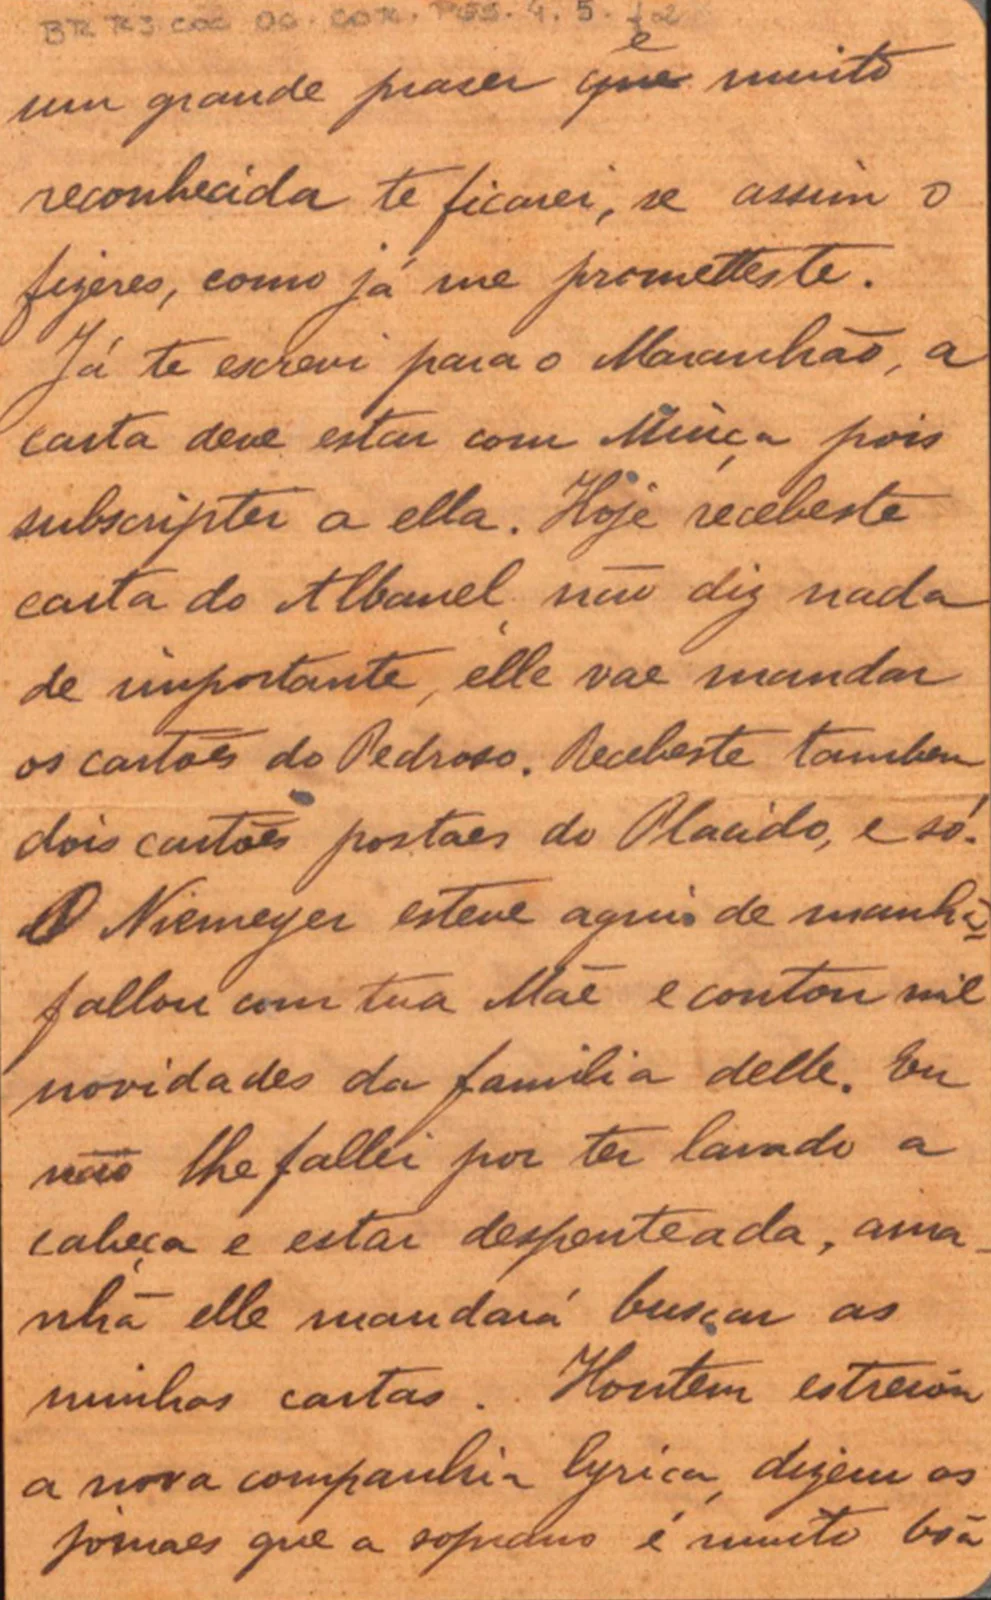 BR RJ COC OC. COR. PES. 4. 5. f02
um grande praser que e muito
reconhecida te ficarei, se assim o
fizeres, como já me prometteste.
Já te escrevi para o Maranhão, a
carta deve estar com Miúça pois
subscriptei a ella. Hoje recebeste
carta do Albanel, não diz nada
de importante, elle vae mandar
os cartões do Pedroso. Recebeste tambem
dois cartões postaes do Placido, e só.
O Niemeyer esteve aqui de manhã,
fallou com tua Mãe e contou mil
novidades da familia delle. Eu
não lhe fallei por ter lavado a
cabeça e estar despenteada, ama-
nhã elle mandará busçar as
minhas cartas. Hontem estreiou
a nova companhia lyrica, dizem os
jornaes que a soprano é muito bôa